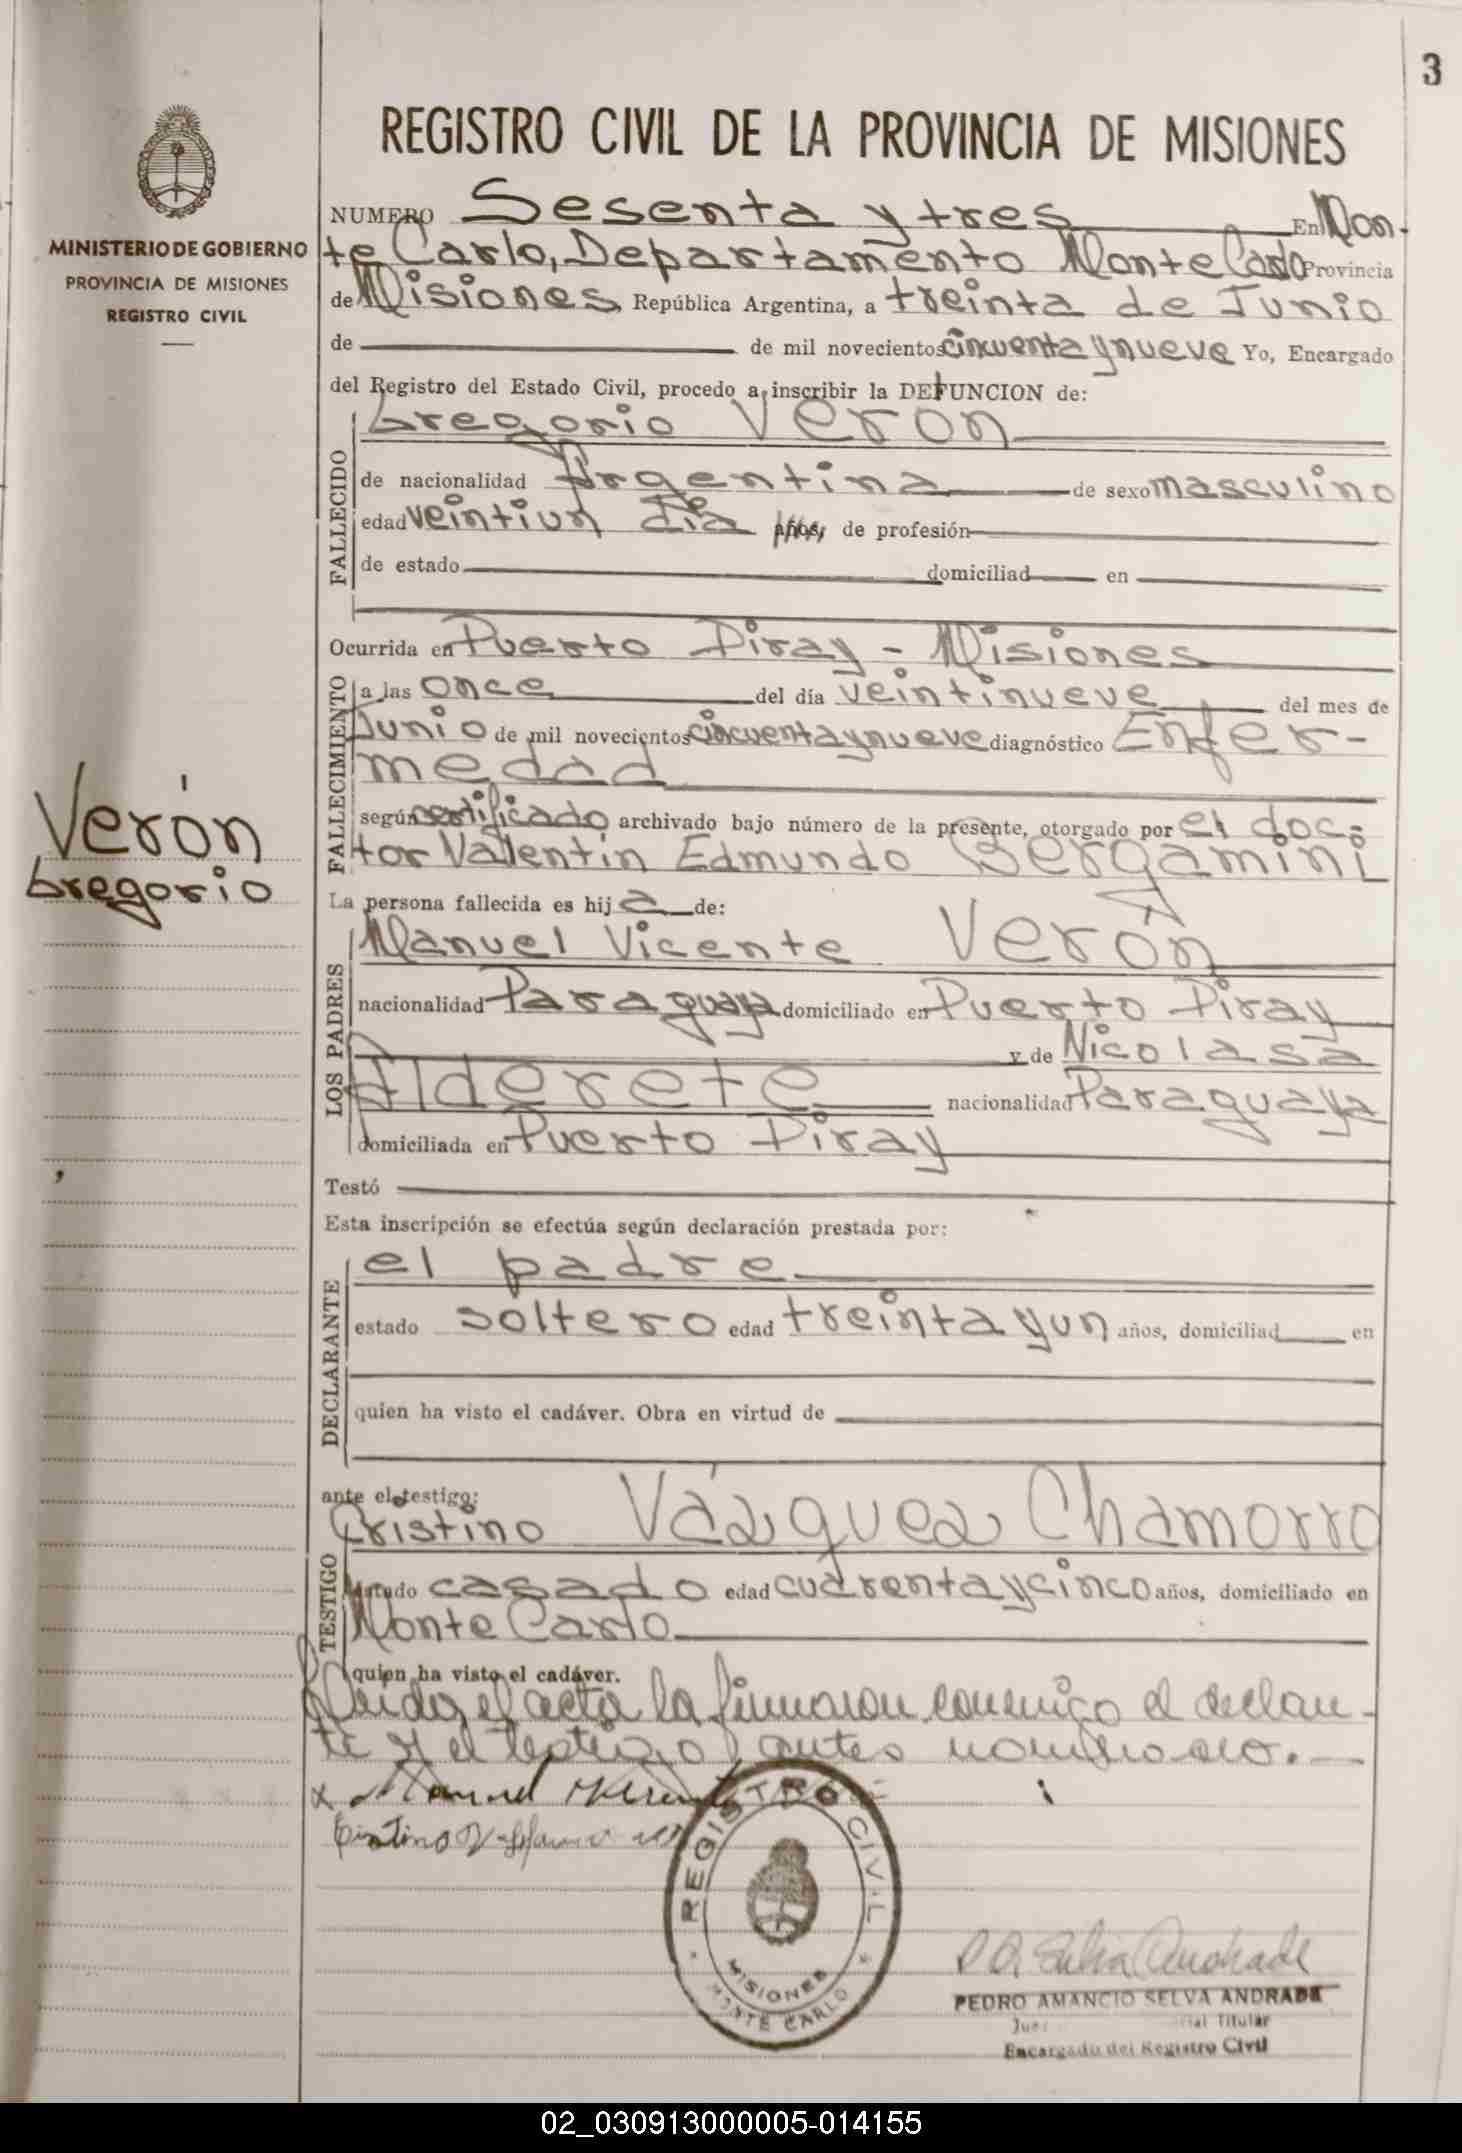 3
REGISTRO CIVIL DE LA PROVINCIA DE MISIONES
MINISTERIO DE GOBIERNO
PROVINCIA DE MISIONES
REGISTRO CIVIL
Verón
Gregorio
NUMERO Sesenta y tres En Mon-
te Carlo, Departamento Monte Carlo Provincia
de Misiones República Argentina, a treinta de Junio
de de mil novecientos cincuenta y nueve Yo, Encargado
del Registro del Estado Civil, procedo a inscribir la DEFUNCION de:
Gregorio Verón
FALLECIDO
de nacionalidad Argentina de sexo masculino
edad veintiun día años, de profesión
de estado domiciliad en
Ocurrida en Puerto Piray - Misiones
FALLECIMIENTO
a las once del día veintinueve del mes de
Junio de mil novecientos cincuenta y nueve diagnóstico Enfer-
medad
según certificado archivado bajo número de la presente, otorgado por el doc-
tor Valentín Edmundo Bergamini
La persona fallecida es hij a de:
LOS PADRES
Manuel Vicente Verón
nacionalidad Paraguaya domiciliado en Puerto Piray
y de Nicolasa
Alderete nacionalidad Paraguaya
domiciliada en Puerto Piray
Testó
Esta inscripción se efectúa según declaración prestada por:
DECLARANTE
el padre
estado soltero edad treinta y un años, domiciliad en
quien ha visto el cadáver. Obra en virtud de
ante el testigo:
TESTIGO
Cristino Vázquez Chamorro
estado casado edad cuarenta y cinco años, domiciliado en
Monte Carlo
quien ha visto el cadáver.
Leida el acta la firmaron conmigo el declaran-
te y el testigo antes nombrado.
x Manuel Vicente
REGISTRO CIVIL
MISIONES
MONTE CARLO
PEDRO AMANCIO SELVA ANDRADE
Titular
Encargado del Registro Civil
02_030913000005-014155